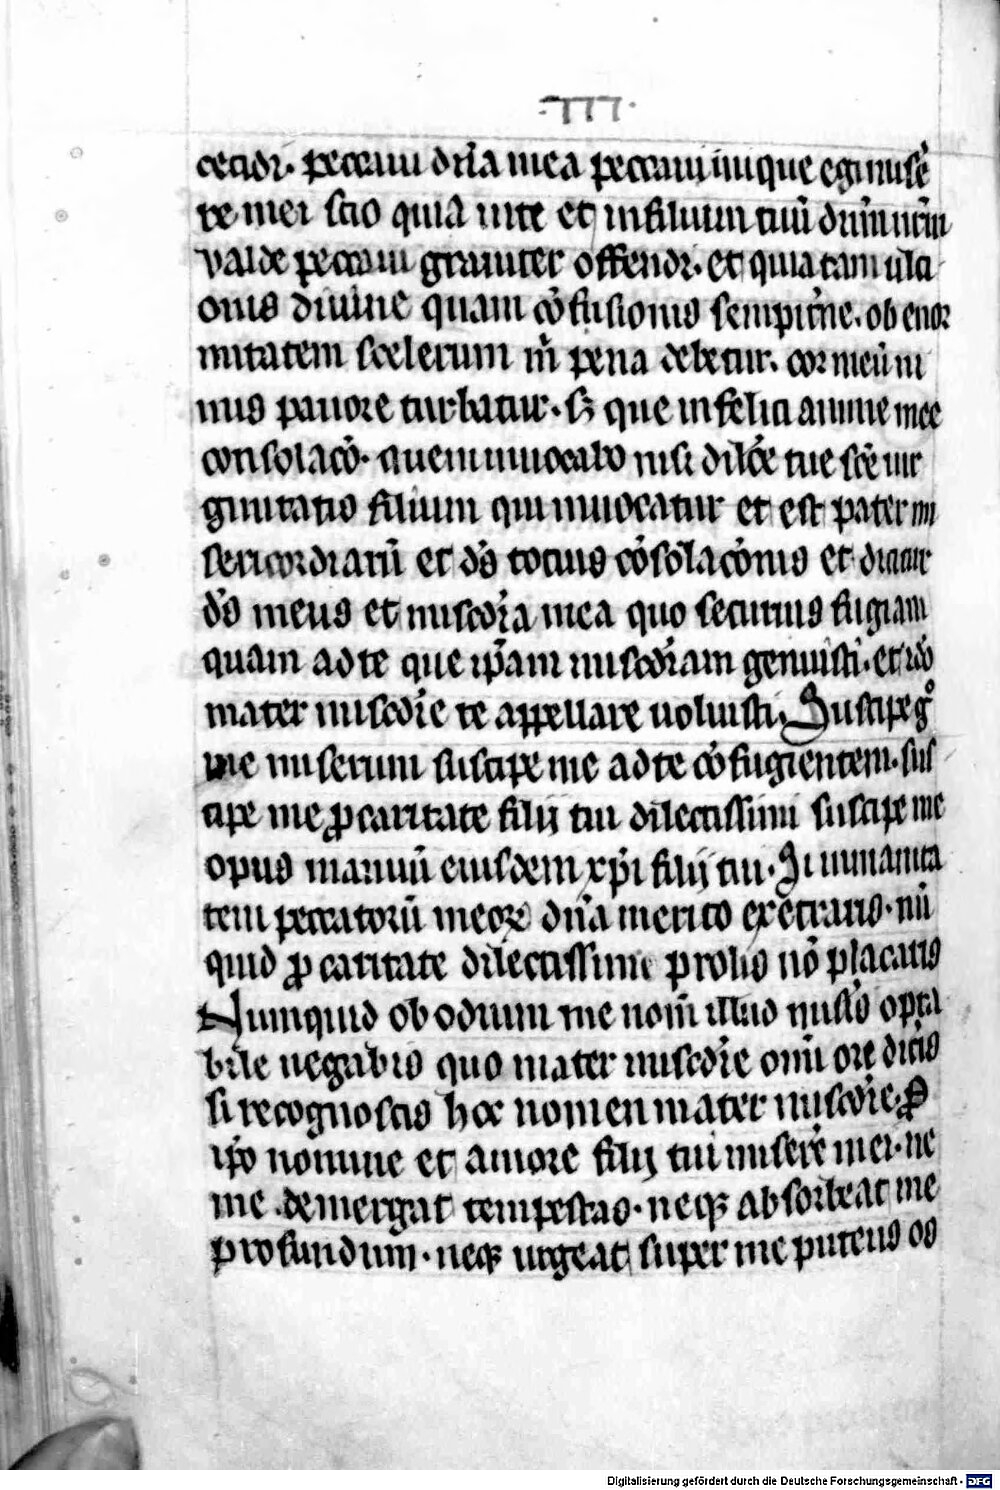 ·III·
cecidi. peccaui dn̄a mea peccaui inique egi misē
re mei scio quia in te et in filium tuū dn̄m nr̄m
valde peccaui grauiter offendi. et quia tam ulci
onis diuine quam cōfusionis sempit̄ne. ob enor
mitatem scelerum m̄ pena debetur. cor meū ni
mis pauore turbatur. sꝫ que infelici anime mee
consolacō. quem inuocabo nisi dilc̄e tue sc̄e uir
ginitatis filium qui inuocatur et est pater mi
sericordiarū et dō tocius cōsolacōnis et dicatur
dō meus et misc̄dia mea quo securius fugiam
quam ad te que ip̄am misc̄diam genuisti. et idō
mater misc̄die te appellare uoluisti. Suscipe gͦ
me miserum suscipe me ad te cōfugientem. sus
cipe me ꝓ caritate filij tui dilectissimi suscipe me
opus manuū eiusdem xp̄i filij tui. Si inmanita
tem peccatorū meoꝝ dn̄a merito execraris. nū
quid ꝓ caritate dilectissime prolis nō placaris
Numquid ob odium me nom̄ illud mis̄s opta
bile negabis quo mater misc̄die om̄i ore dicis
si recognoscis hoc nomen mater misc̄die. ꝓ
ip̄o nomine et amore filij tui miserē mei. ne
me demergat tempestas. neqꝫ absorbeat me
profundum. neqꝫ urgeat super me puteus os
Digitalisierung gefördert durch die Deutsche Forschungsgemeinschaft - DFG